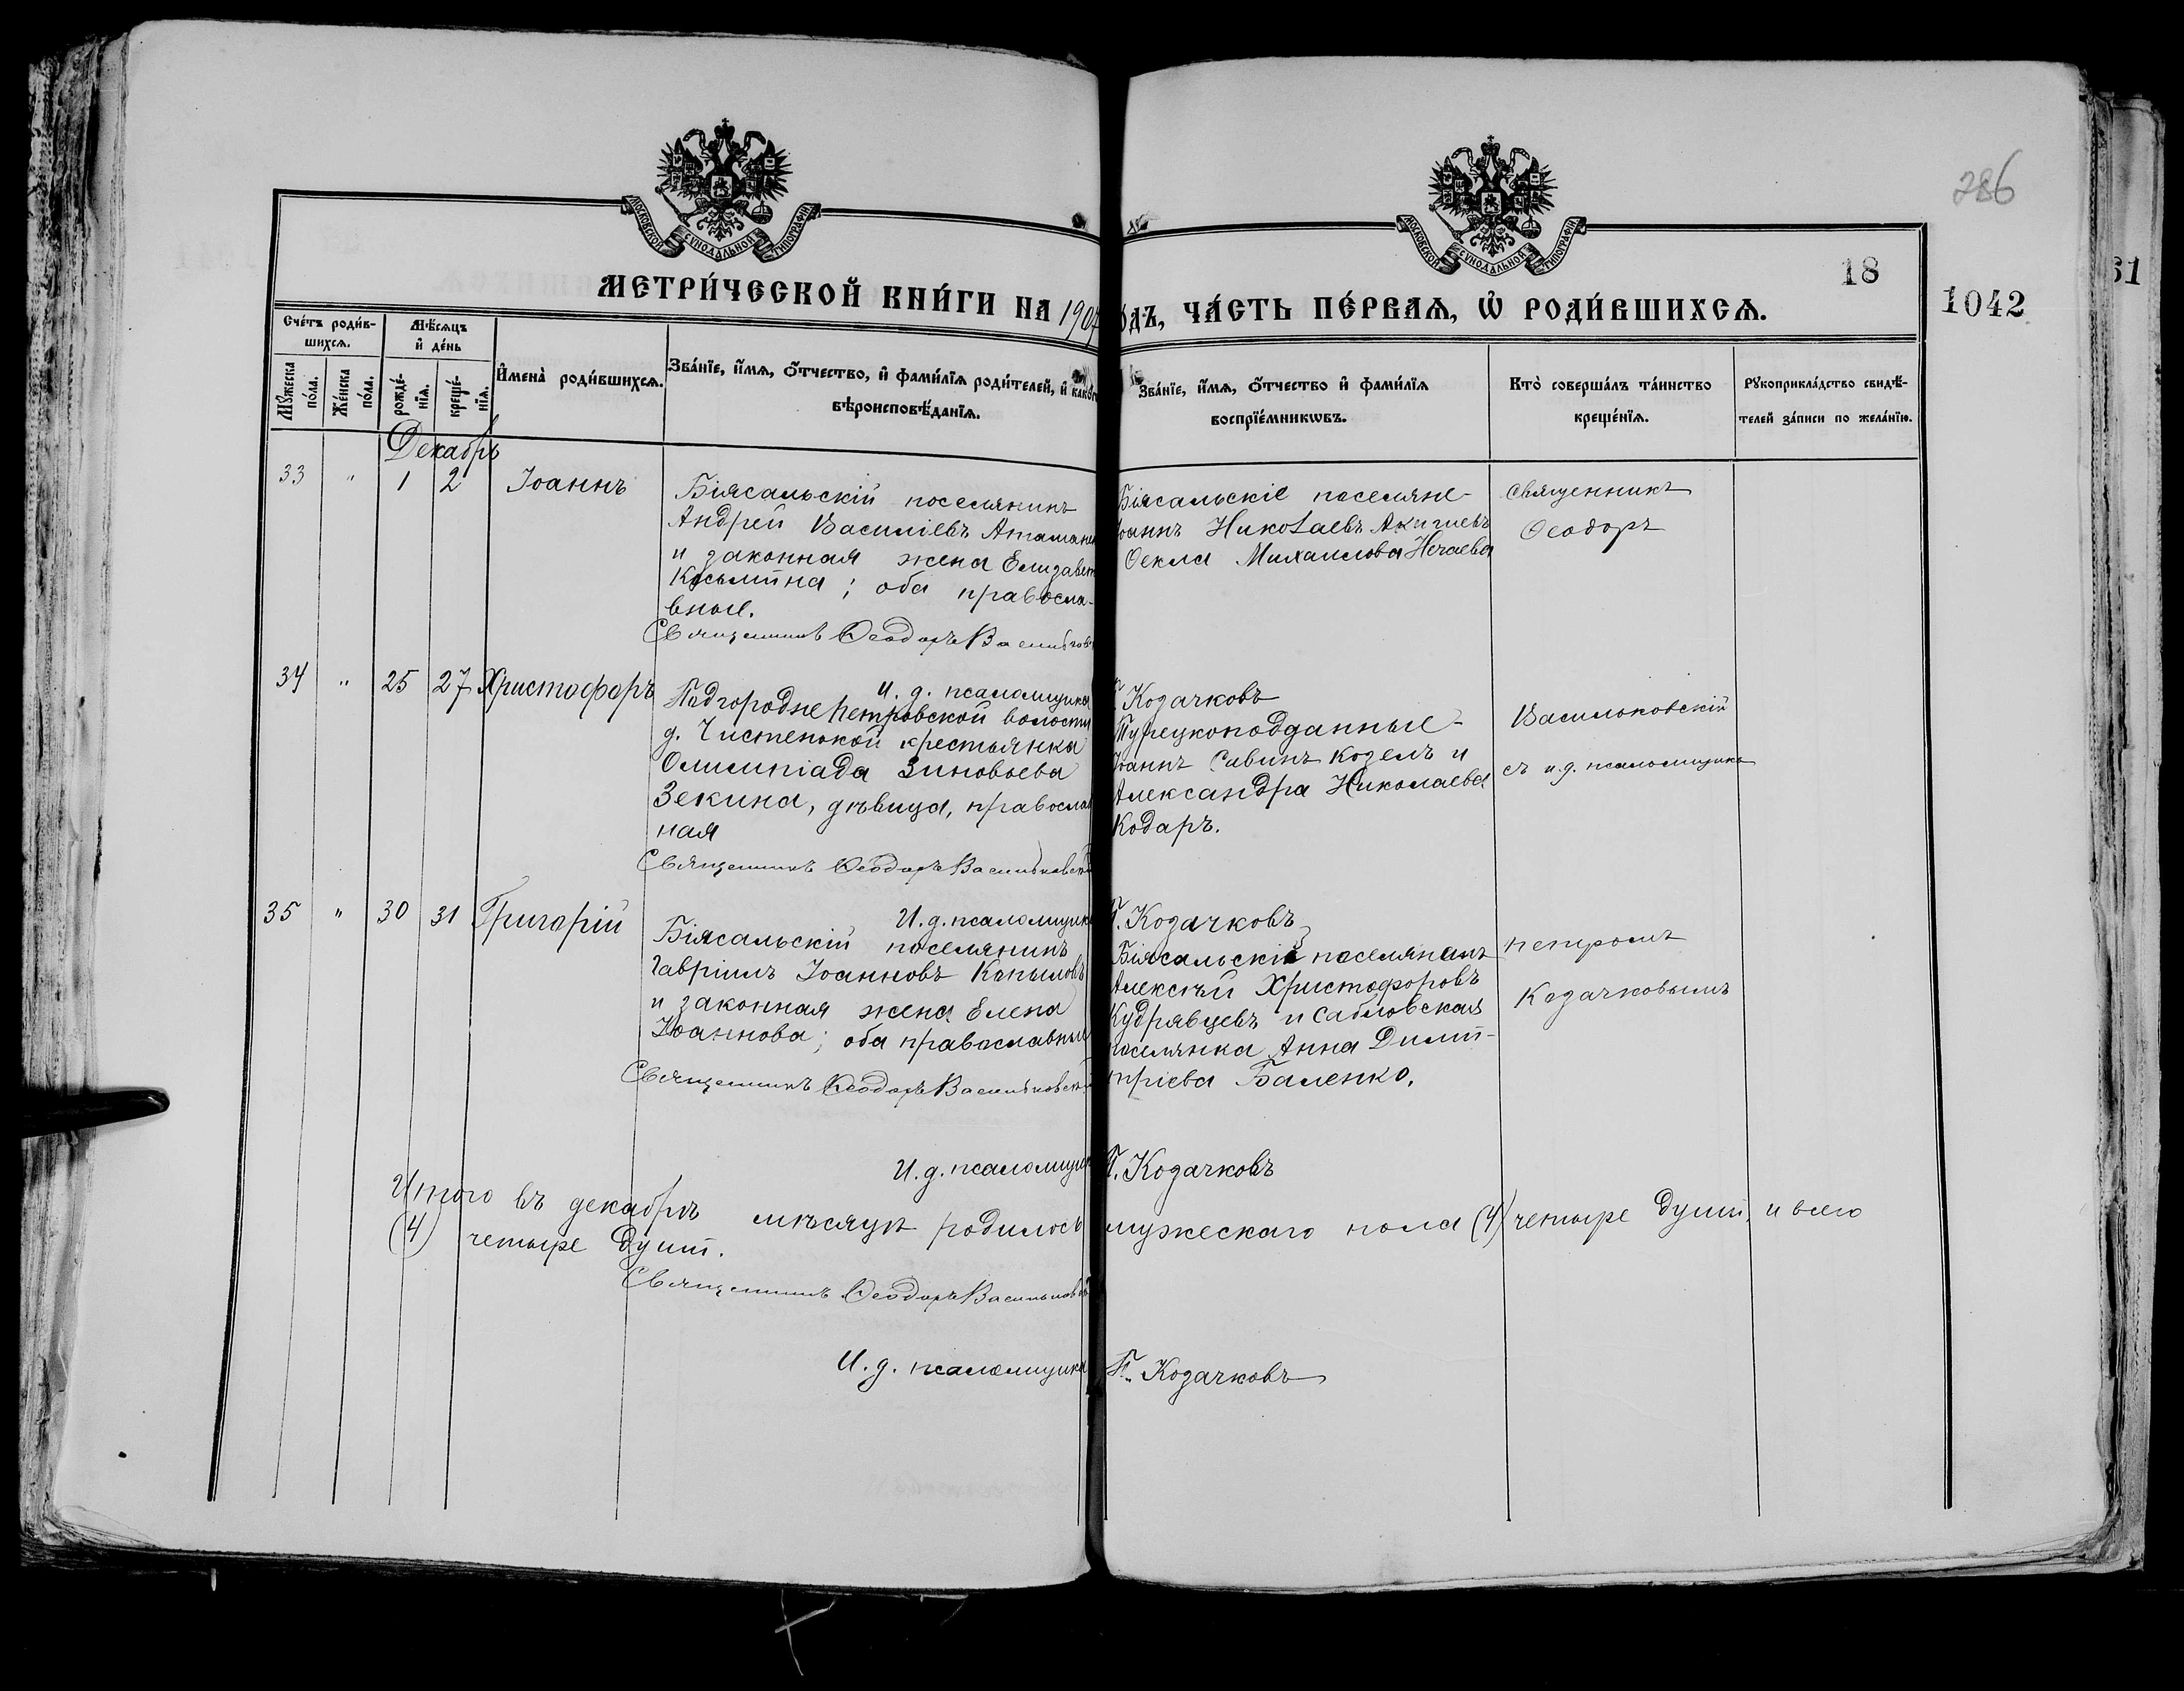 286
МОСКОВСКОЙ СУНОДАЛЬНОЙ ТИПОГРАФІИ
МОСКОВСКОЙ СУНОДАЛЬНОЙ ТИПОГРАФІИ
18
1042
61
МЕТРИ́ЧЕСКОЙ КНИ́ГИ НА 1907
ѻдъ, ЧА́СТЬ ПЕ́РВАѦ, Ѡ҆ РОДИ́ВШИХСѦ.
Сче́тъ роди́в-
шихсѧ.
Мꙋ́жеска
по́ла.
Же́нска
по́ла.
Мѣ́сѧцъ
и҆ де́нь
рожде́-
нїѧ.
креще́-
нїѧ.
И҆мена̀ роди́вшихсѧ.
Зва́нїе, и҆́мѧ, ѻ҆́тчество, и҆ фами́лїѧ роди́телей, и҆ како́гѡ
вѣроисповѣ́данїѧ.
Зва́нїе, и҆́мѧ, ѻ҆́тчество и҆ фами́лїѧ
воспрїе́мникѡвъ.
Кто̀ соверша́лъ та́инство
креще́нїѧ.
Рꙋкоприкла́дство свидѣ́-
телей за́писи по жела́нїю.
Декабрь
33 " 1 2 Іоаннъ
Біясальскій поселянинъ
Андрей Василіевъ
и законная жена Елизавет
Косьмина; оба правосла-
вные.
Священникъ Ѳеодоръ Васильков
Біясальскіе поселяне-
Іоаннъ Николаевъ
Ѳекла Михаилова Нечаева
священникъ
Ѳеодоръ
И. д. псаломщика
П. Козачковъ
34 " 25 27 Христофоръ
Подгородне Петровской волости
д. Чистенькой крестьянка
Олимпіада Зиновьева
Зекина, дѣвица, православ
ная
Священникъ Ѳеодоръ Васильковскій
Турецкоподданные-
Іоаннъ Савинъ Козелъ и
Александра Николаева
Кодаръ.
Васильковскій
съ и.д. псаломщика
И. д. псаломщика
П. Козачковъ
35 " 30 31 Григорій
Біясальскій поселянинъ
Гавріилъ Іоанновъ Копыловъ
и законная жена Елена
Іоаннова; оба православные
Священникъ Ѳеодоръ Васильковскій
Біясальскій поселянинъ
Алексѣй Христофоровъ
Кудрявцевъ и Сабловская
поселянка Анна Димит-
тріева Баленко.
Петромъ
Козачковымъ
И. д. псаломщик
П. Козачковъ
Итого въ декабрѣ мѣсяцѣ родилось мужескаго пола (4) четыре души, и всего
(4) четыре души.
Священникъ Ѳеодоръ Васильковскій
И. д. псаломщика П. Козачковъ